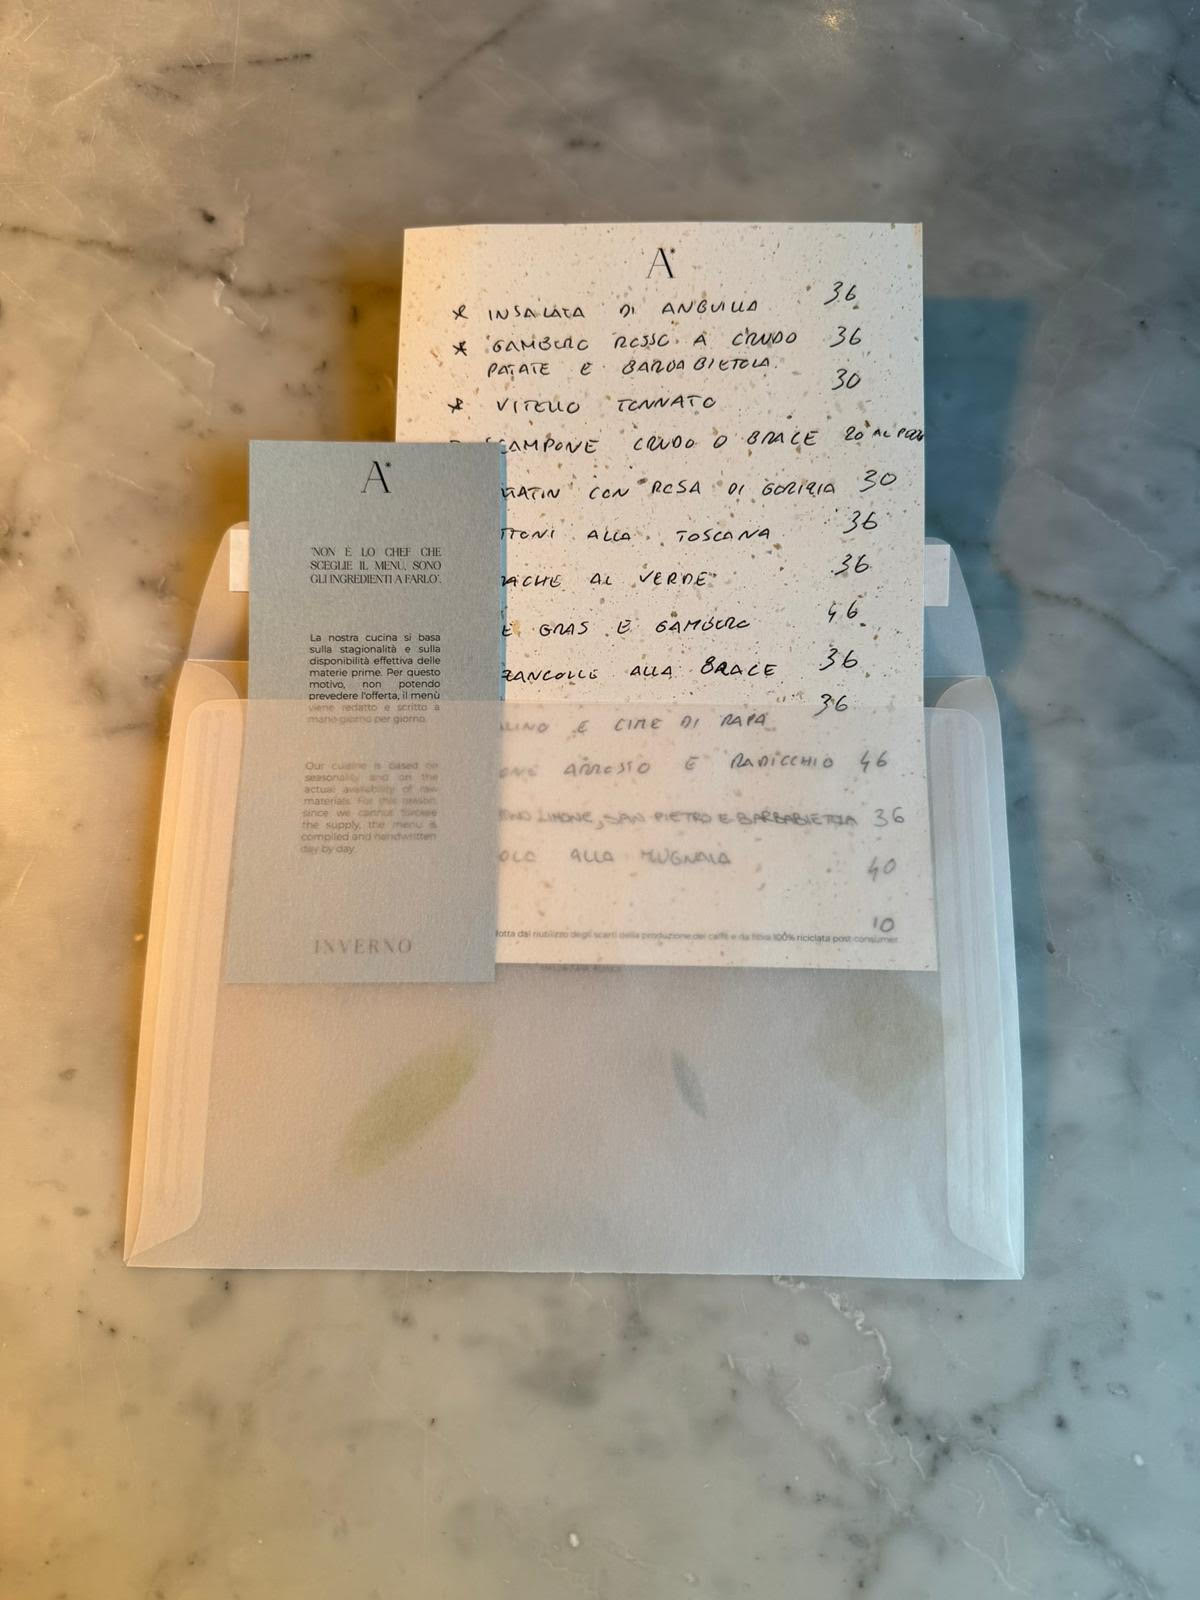 A*
* INSALATA DI ANGUILLA 36
* GAMBERO ROSSO A CRUDO 36
PATATE E BARBABIETOLA
* VITELLO TONNATO 30
SCAMPONE CRUDO O BRACE 20 AL PEZZO
CON ROSA DI GORIZIA 30
TTONI ALLA TOSCANA 36
ACHE AL VERDE 36
E GRAS E GAMBERO 46
ZANCOLLE ALLA BRACE 36
LINO E CIME DI RAPA 36
ONE ARROSTO E RADICCHIO 46
LIMONE, SAN PIETRO E BARBABIETOLA 36
OLA ALLA MUGNAIA 40
10
dotta dal riutilizzo degli scarti della produzione del caffè e da fibra 100% riciclata post-consumer
A*
"NON È LO CHEF CHE
SCEGLIE IL MENU, SONO
GLI INGREDIENTI A FARLO".
La nostra cucina si basa
sulla stagionalità e sulla
disponibilità effettiva delle
materie prime. Per questo
motivo, non potendo
prevedere l'offerta, il menù
viene redatto e scritto a
mano giorno per giorno.
Our cuisine is based on
seasonality and on the
actual availability of raw
materials. For this reason,
since we cannot foresee
the supply, the menu is
compiled and handwritten
day by day.
INVERNO